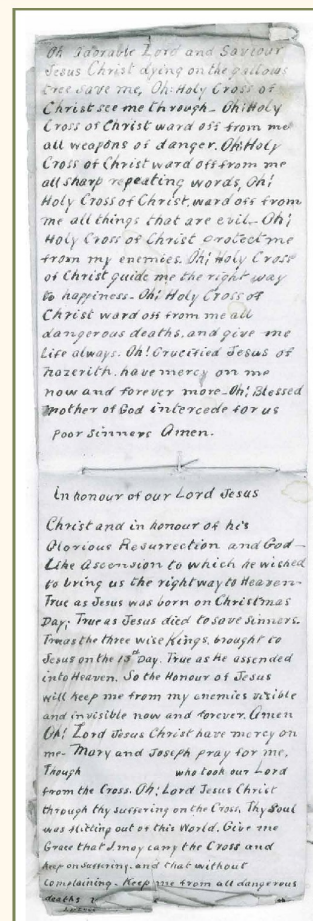 Oh Adorable Lord and Saviour
Jesus Christ dying on the gallows
tree save me, Oh! Holy Cross of
Christ see me through - Oh! Holy
Cross of Christ ward off from me
all weapons of danger. Oh! Holy
Cross of Christ ward off from me
all sharp repeating words, Oh!
Holy Cross of Christ, ward off from
me all things that are evil - Oh!
Holy Cross of Christ protect me
from my enemies. Oh! Holy Cross
of Christ guide me the right way
to happiness - Oh! Holy Cross of
Christ ward off from me all
dangerous deaths, and give me
life always. Oh! Crucified Jesus of
nazerith, have mercy on me
now and forever more - Oh! Blessed
mother of God intercede for us
poor sinners Amen.
In honour of our Lord Jesus
Christ and in honour of his
Glorious Resurrection and God-
Like Ascension to which he wished
to bring us the right way to Heaven-
True as Jesus was born on Christmas
Day; True as Jesus died to save Sinners.
True as the three wise Kings, brought to
Jesus on the 13th Day. True as He assended
into Heaven. So the Honour of Jesus
will keep me from my enemies visible
and invisible now and forever. Amen
Oh! Lord Jesus Christ have mercy on
me - Mary and Joseph pray for me,
Though who took our Lord
from the Cross. Oh! Lord Jesus Christ
through thy suffering on the Cross, Thy Soul
was flitting out of this World. Give me
Grace that I may carry the Cross and
keep on suffering. and that without
complaining. Keep me from all dangerous
deaths